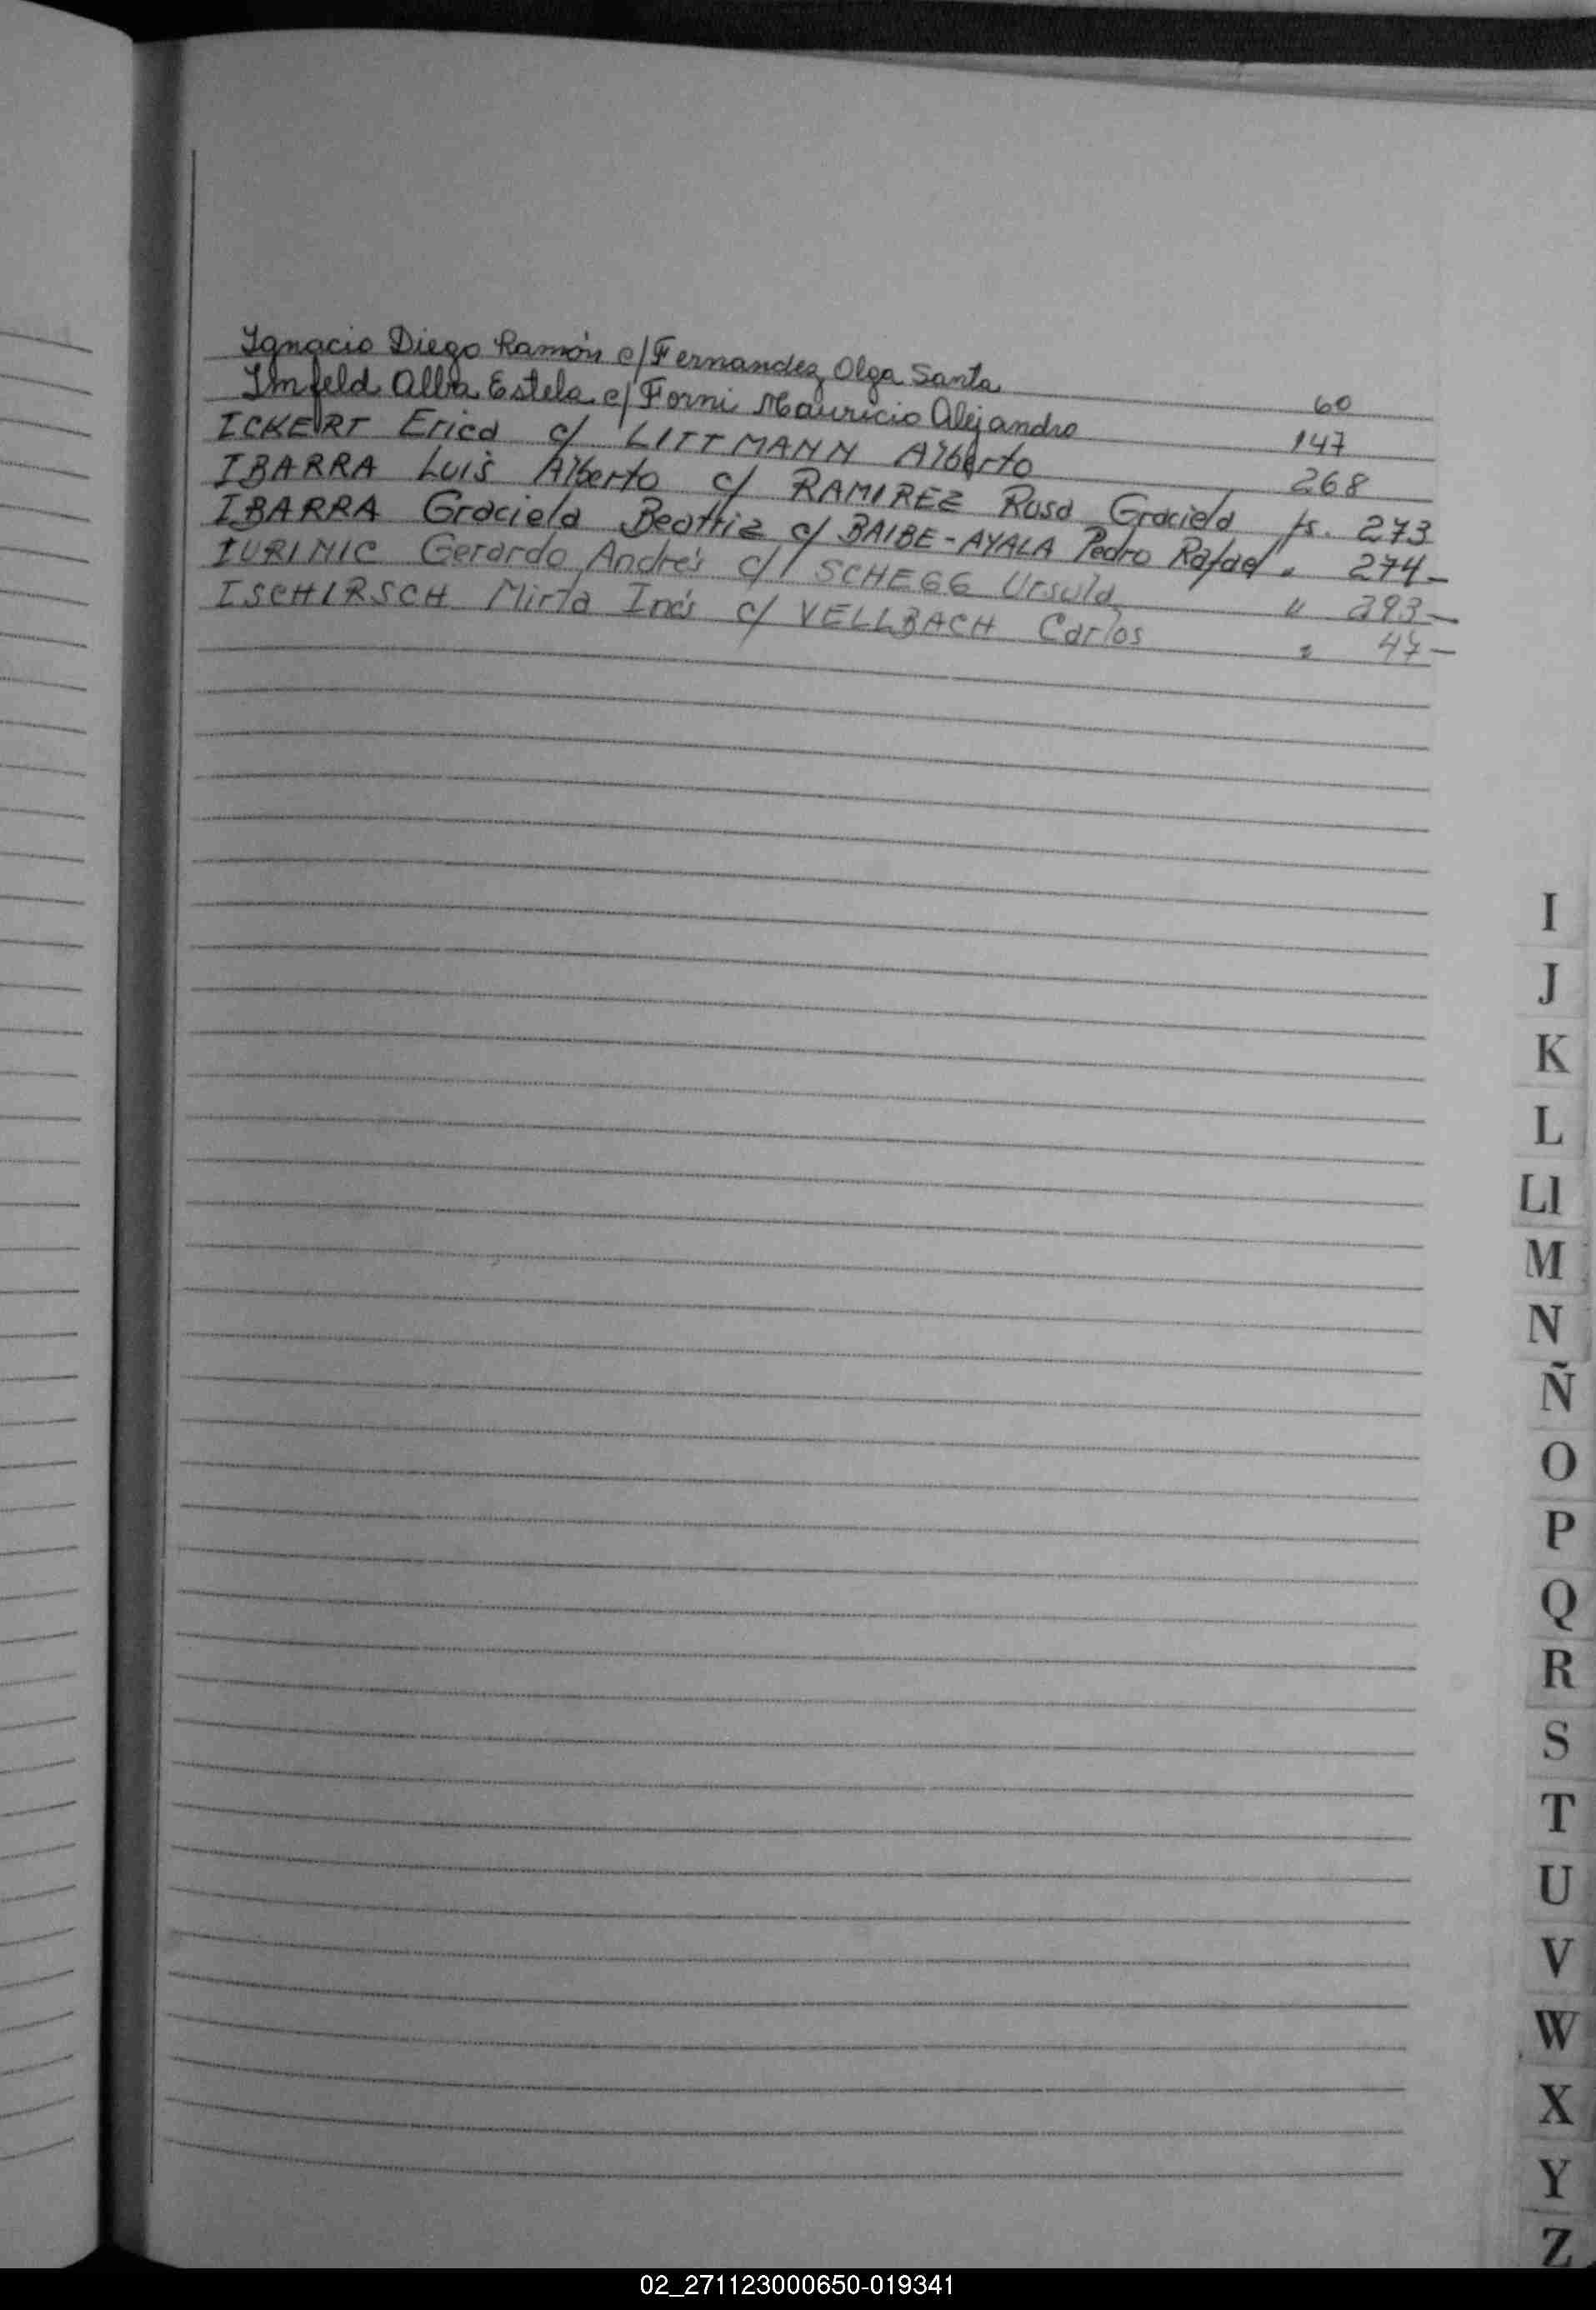 Ignacio Diego Ramón c/ Fernandez Olga Santa 60
Imfeld Alba Estela c/ Forni Mauricio Alejandro 147
ICKERT Erica c/ LITTMANN Alberto 268
IBARRA Luis Alberto c/ RAMIREZ Rosa Graciela fs. 273
IBARRA Graciela Beatriz c/ BAIBE-AYALA Pedro Rafael " 274-
IURINIC Gerardo Andrés c/ SCHEGG Ursula " 293-
ISCHIRSCH Mirta Inés c/ VELLBACH Carlos " 47-
I
J
K
L
Ll
M
N
Ñ
O
P
Q
R
S
T
U
V
W
X
Y
Z
02_271123000650-019341